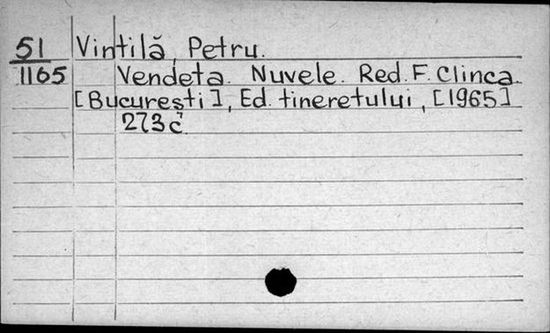 51 Vintilă, Petru.
1165 Vendeta. Nuvele. Red. F. Clinca.
[București], Ed. tineretului, [1965]
273 č.